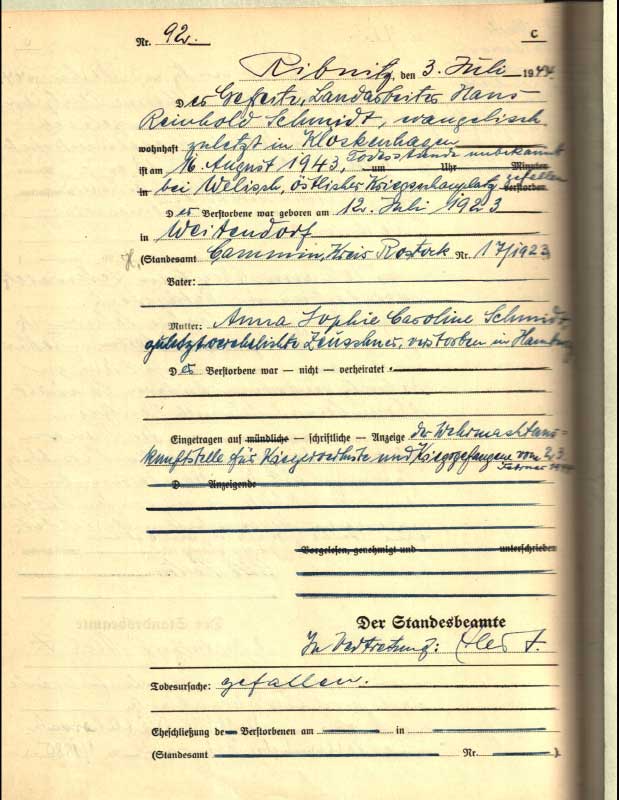 Nr. 92.
C
Ribnitz, den 3. Juli 1944
Der Gefreite, Landarbeiter Hans
Reinhold Schmidt, evangelisch
wohnhaft zuletzt in Klockenhagen
ist am 16. August 1943, Todesstunde unbekannt um Uhr Minuten
in bei Welisch, östlicher Kriegsschauplatz gefallen verstorben.
Der Verstorbene war geboren am 12. Juli 1923
in Weitendorf
(Standesamt Cammin, Kreis Rostock Nr. 17/1923
Vater:
Mutter: Anna Sophie Caroline Schmidt,
zuletzt verehelichte verstorben in Hamburg
Der Verstorbene war — nicht — verheiratet
Eingetragen auf mündliche — schriftliche — Anzeige der Wehrmachtaus-
kunftstelle für Kriegerverluste und Kriegsgefangene vom 23.
Februar 1944
D Anzeigende
Vorgelesen, genehmigt und unterschrieben
Der Standesbeamte
In Vertretung:
Todesursache: gefallen.
Eheschließung de Verstorbenen am in
(Standesamt Nr. ).